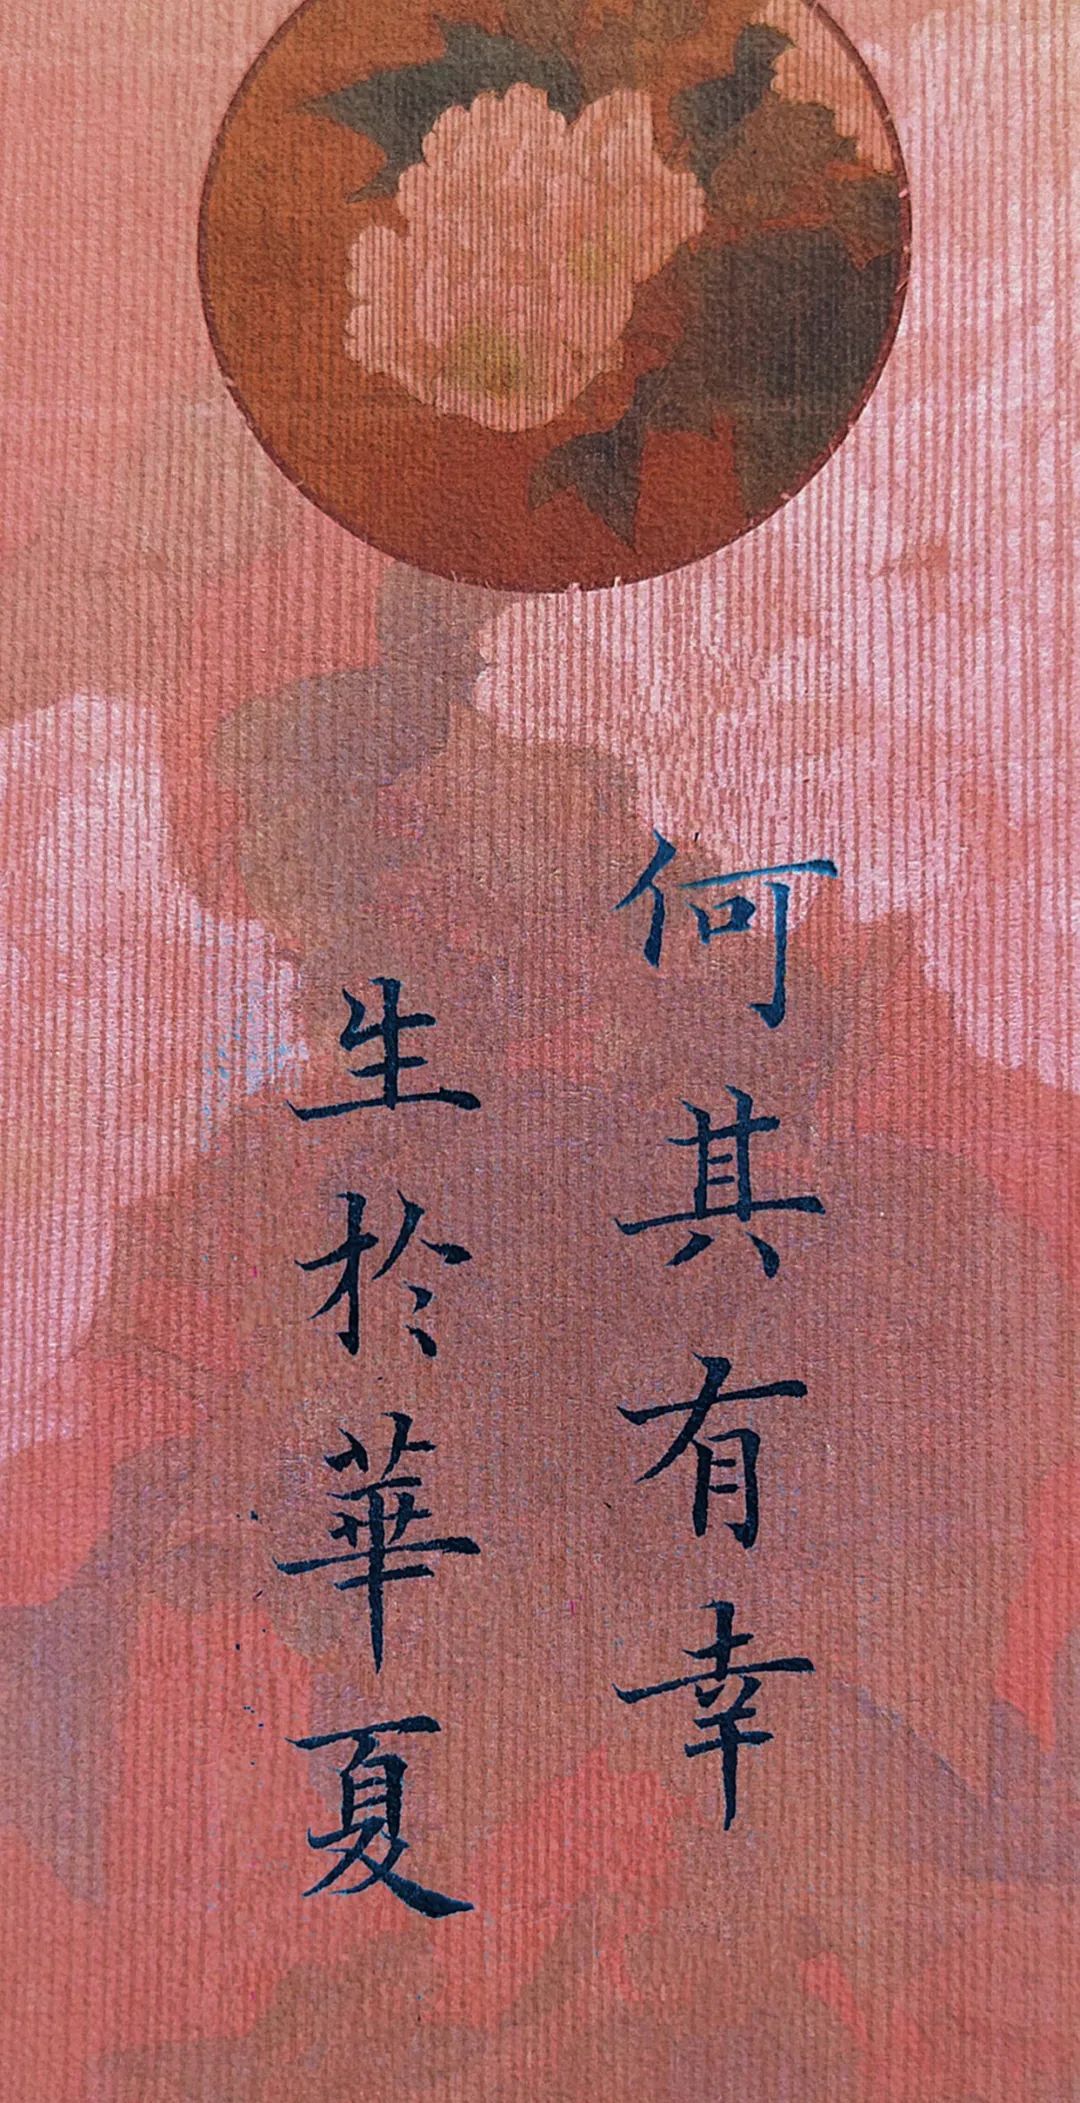 何其有幸
生於華夏